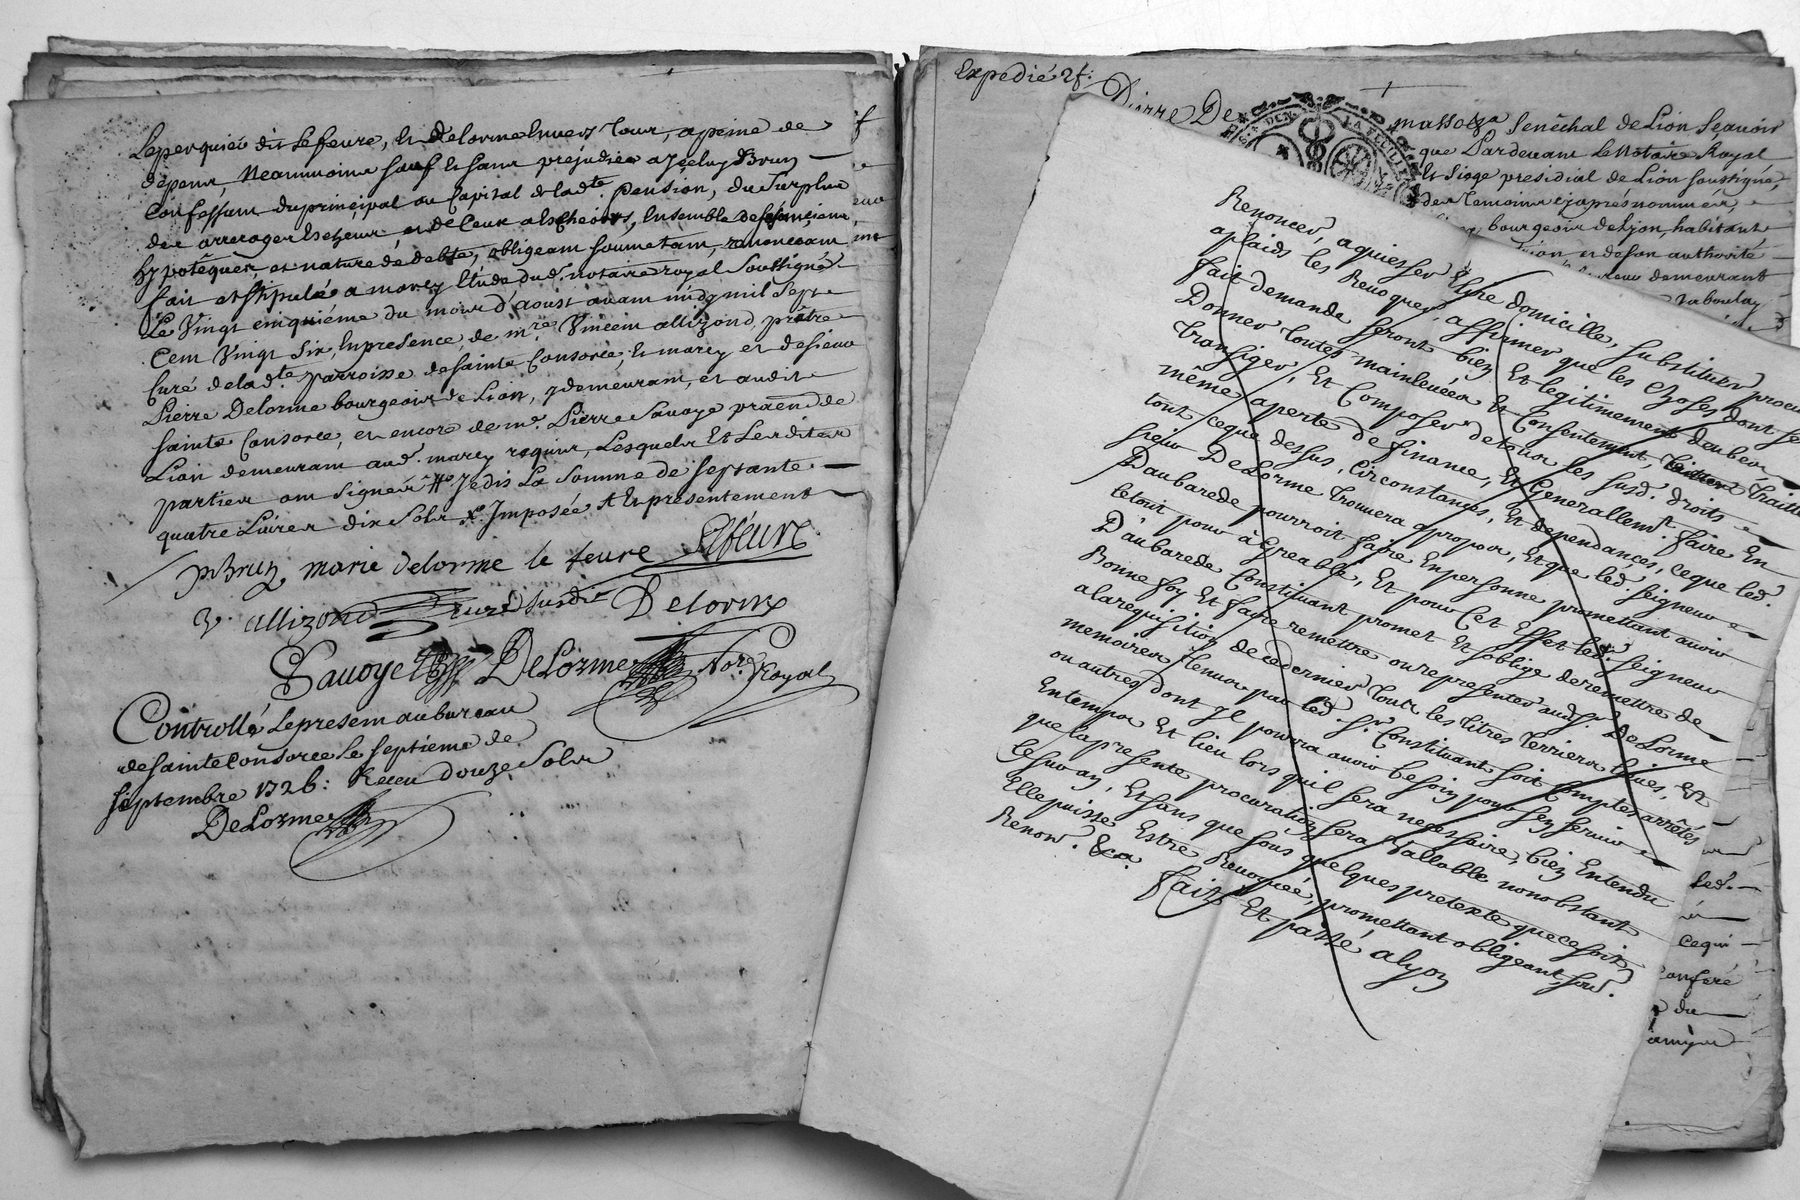 Leperquié dit Lefeure, et Delorme envers tous, apeine de
depens, Neammoins sauf et sans prejudice a Jceluy Brun
Confessant du principal ou Capital deladte pension, du surplus
des arrerages escheus et de Ceux a Escheoirs, Ensemble de
hypotêques, et nature de debte, obligeam soumetam, renonceam
fait et stipulé a marcy Etude dud. notaire royal Soussigné
Le Vingt cinquiéme du mois d'aoust avam midy mil sept
Cent Vingt Six, En presence, de mre. Vincem allizond, prêtre
Curé deladte. parroisse de sainte Consorce, et marcy et de sieur
Pierre Delorme bourgeois de Lion, y demeuram, et audit
Sainte Consorce, et encore de mr. Pierre Sauoye praen de
Lion demeuram aud. marcy requis, Lesquels Et Lesdites
parties ont signées Jedis La Somme de septante
quatre Livres dix Sols Imposée Et presentement
P Brun marie delorme le feure Lefeure
V. allizond curé susdt Delorme
P Sauoye DeLorme Nore. Royal
Controllé Le presem au bureau
de sainte Consorce le septieme de
septembre 1726: Receu douze Sols
DeLorme
Expedié 2f:
Pierre De
massoza Senêchal de Lion Seauoir
que Pardeuam Le Notaire Royal
et Siege presidial de Lion soussigné,
des Temoins cy aprés nommés,
bourgeois de Lyon, habitant
et de son authorité
demeurant
Renoncer, aquiesser Elire domicille, substituer procu
aplaids les Reuoquer, affirmer que les Choses dont se
fait demande seront bien Et legitimement deubeos
Donner toutes mainleuées Et Consentement, traitte
transiger, Et Composer de tous les susd. droits
même aperte de finance, Et Generallemt. faire En
tout ceque dessus, circonstances, Et dependances, ceque led.
sieur DeLorme trouuera apropos, Et que led. Seigneur
Daubarede pourroit faire En personne promettant auoir
letout pour agreable, Et pour Cet Effet led. Seigneur
D'aubarede Constituant promet Et soblige deremettre de
Bonne foy Et faire remettre ou representer aud. sr. DeLorme
alarequisition de cedernier tous les titres terriers lieues, Et
memoires tenus par led. sr. Constituant soit Comptes arrêtés
ou autres dont Jl pourra auoir besoin pour sen seruir
Entemps Et lieu lors qu'il sera necessaire, bien Entendu
que la presente procuration sera Vallable nonobstant
Le sur an, Et sans que sous quelques pretexte que ce soit
Elle puisse Estre Reuoquée, promettant obligeant, sou.
Renon. &ca.
Fait Et passé a lyon
led.
cequi
Conferé
du